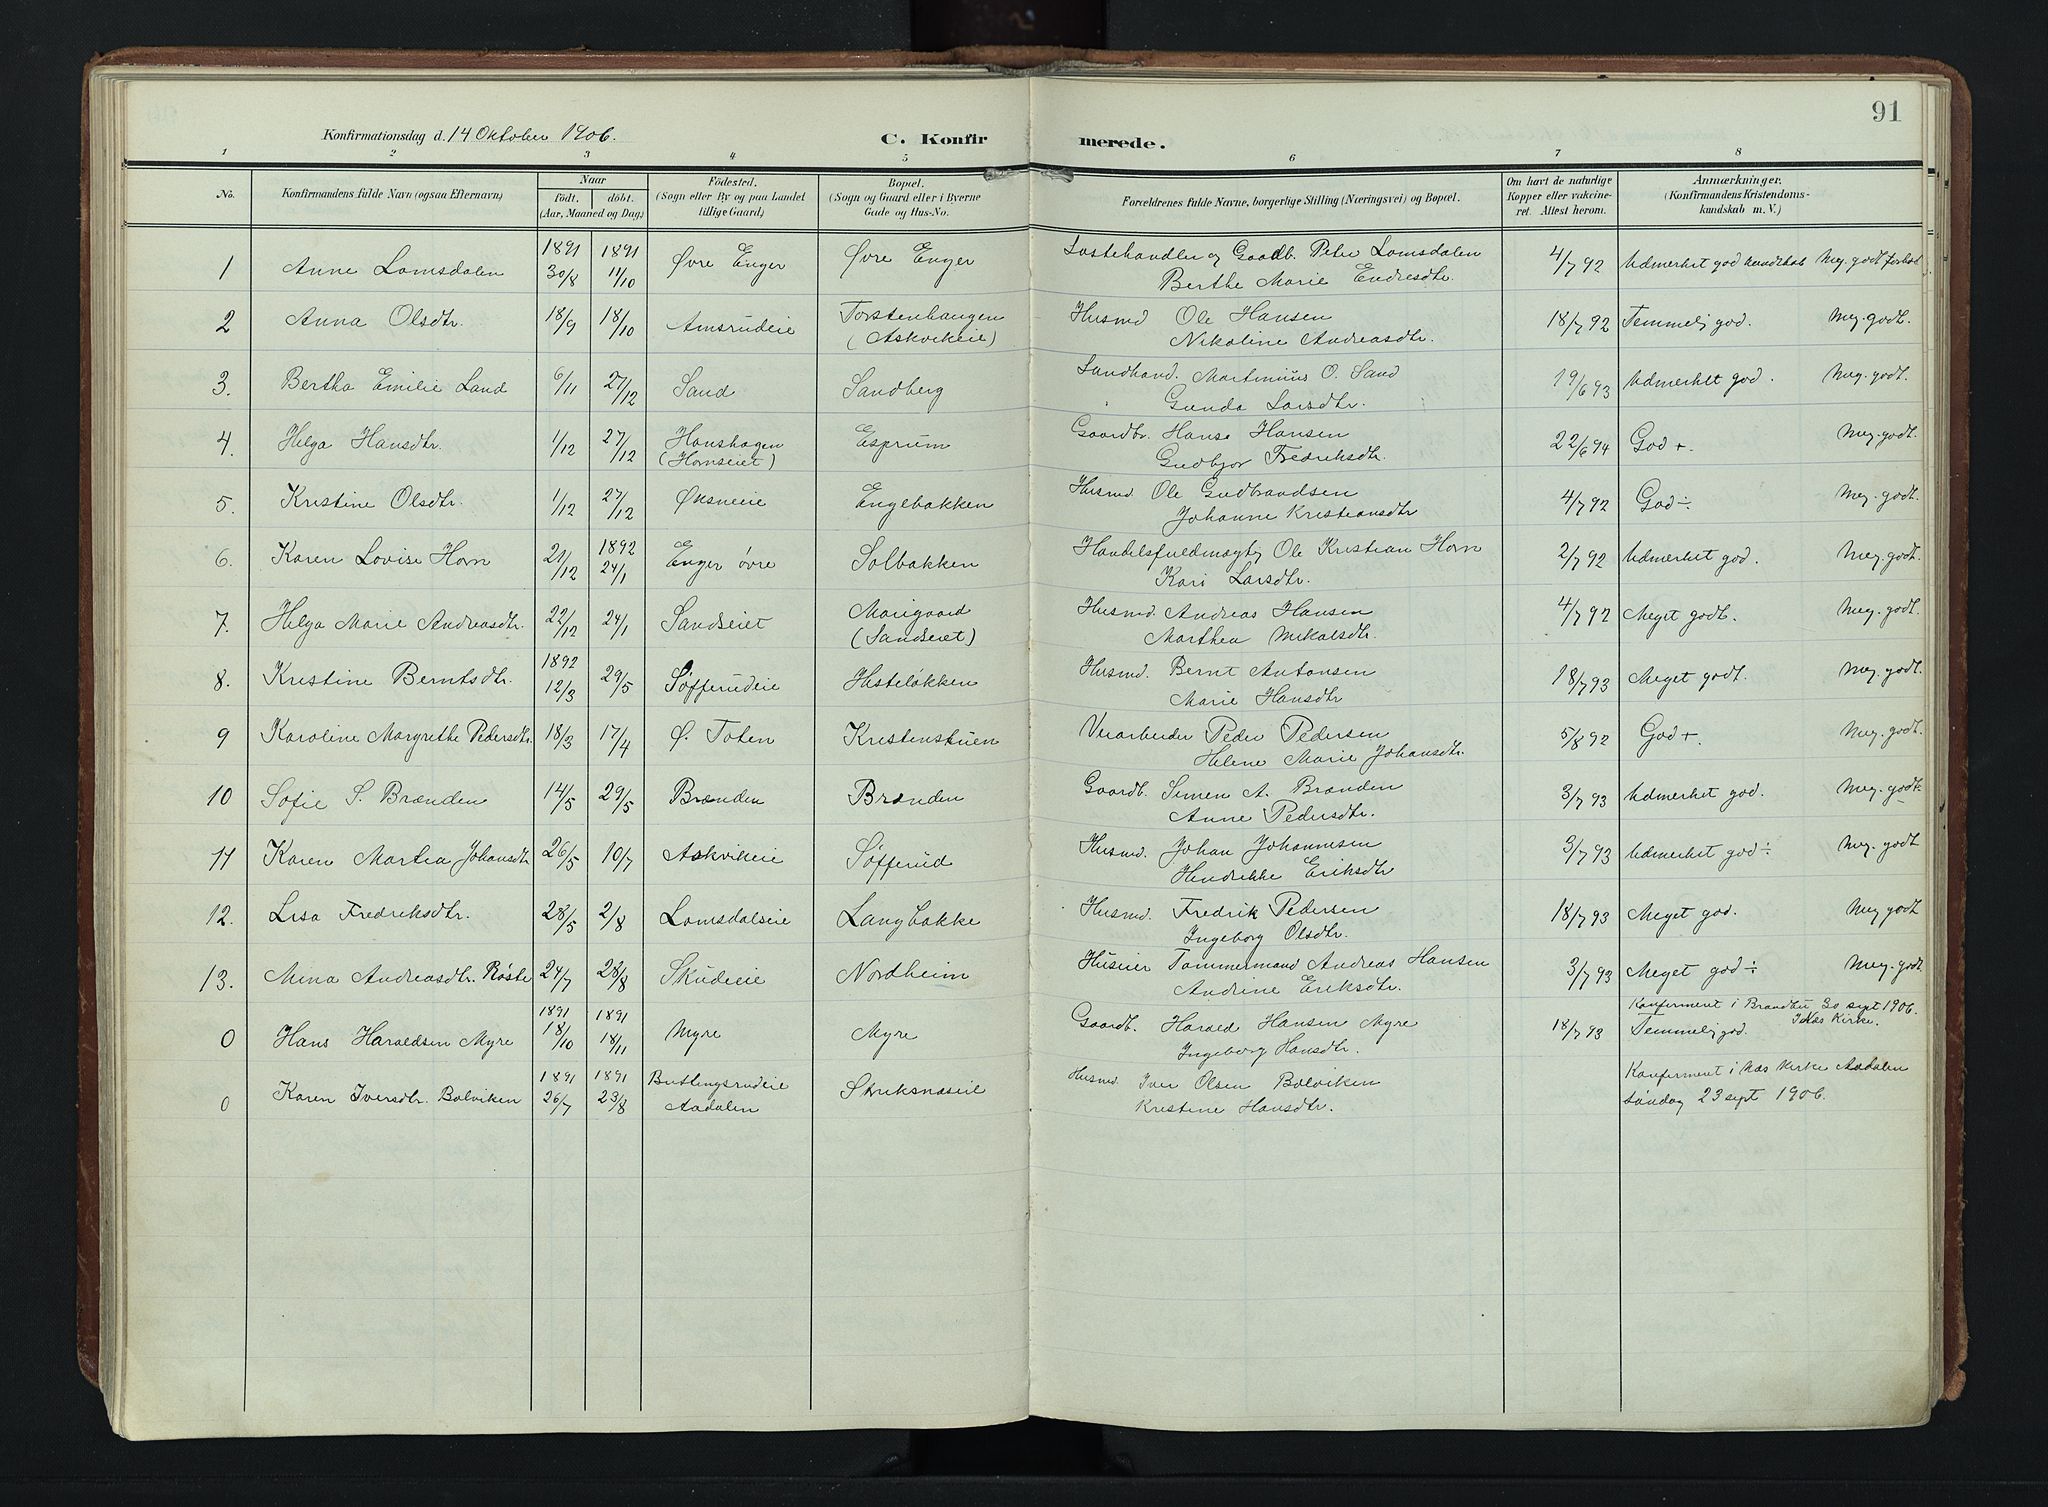 91
Konfirmationsdag d. 14 Oktober 1906.
C. Konfirmerede.
1 2 3 4 5 6 7 8
No. | Konfirmandens fulde Navn (ogsaa Efternavn) | Naar født. døbt. (Aar, Maaned og Dag) | Fødested. (Sogn eller By og paa Landet tillige Gaard) | Bopæl. (Sogn og Gaard eller i Byerne Gade og Hus-No. | Forældrenes fulde Navne, borgerlige Stilling (Næringsvei) og Bopæl. | Om havt de naturlige Kopper eller vakcineret. Attest herom. | Anmærkninger. (Konfirmandens Kristendomskundskab m. V.)
1 Anne Lomsdalen 1891 30/8 1891 11/10 Øvre Enger Øvre Enger Lastehandler og Gaardb. Peter Lomsdalen 4/7 92 Udmerket god kundskab Meg. godt forhold
Berthe Marie Endresdtr.
2 Anna Olsdtr. 18/9 18/10 Amsrudeie Torstenhaugen (Askvikeie) Husmd Ole Hansen 18/7 92 Temmelig god. Meg. godt.
Nikoline Andreasdtr.
3. Bertha Emilie Land 6/11 27/12 Sand Sandberg Landhand. Martinius O. Sand 19/6 93 Udmerket god. Meg. godt.
Gunda Larsdtr.
4. Helga Hansdtr. 1/12 27/12 Hanshagen (Hornseiet) Esprum Gaardbr. Hans Hansen 22/6 94 God +. Meg. godt.
Gudbjor Fredriksdtr.
5. Kristine Olsdtr. 1/12 27/12 Øksneeie Engebakken Husmd Ole Gudbrandsen 4/7 92 God ÷ Meg. godt.
Johanne Kristiansdtr
6. Karen Lovise Horn 21/12 1892 24/1 Enger øvre Solbakken Handelsfuldmægtig Ole Kristian Horn 2/7 92 Udmerket god. Meg. godt.
Kari Larsdtr.
7. Helga Marie Andreasdtr. 22/12 24/1 Sandseiet Marigaard (Sandseiet) Husmd Andreas Hansen 4/7 92 Meget godt. Meg. godt.
Marthea Mikalsdtr.
8. Kristine Berntsdtr. 1892 12/3 29/5 Søfferudeie Histeløkken Husmd. Bernt Antonsen 18/7 93 Meget godt. Meg. godt.
Marie Hansdtr
9 Karoline Margrethe Pedersdtr. 18/3 17/4 Ø. Toten Kristenstuen Peder Pedersen 5/8 92 God +. Meg. godt.
Helene Marie Johansdtr.
10 Sofie S. Brænden 14/5 29/5 Brænden Brænden Gaardb. Simen A. Brænden 3/7 93 Udmerket god. Meg. godt.
Anne Pedersdtr.
11 Karen Martea Johansdtr 26/5 10/7 Askvikeie Søfferud Husmd. Johan Johannesen 3/7 93 Udmerket god ÷. Meg. godt
Hendrikke Eriksdtr
12. Lisa Fredriksdtr. 28/5 2/8 Lomsdalseie Langbakke Husmd. Fredrik Pedersen 18/7 93 Meget god. Meg godt
Ingeborg Olsdtr.
13. Mina Andreasdtr. Røste 24/7 28/8 Skudeie Nordheim Huseier Tømmermand Andreas Hansen 3/7 93 Meget god ÷ Meg. godt
Andrine Eriksdtr.
0 Hans Haraldsen Myre 1891 18/10 1891 18/11 Myre Myre Gaardb. Harald Hansen Myre 18/7 93 Konfirmeret i Brandbu 30 sept 1906. I Næs Kirke. Temmelig god.
Ingeborg Hansdtr.
0 Karen Iversdtr. Bølviken 1891 26/7 1891 23/8 Butlingsrudeie Aadalen Struksnæseie Husmd Iver Olsen Bølviken Konfirmeret i Næs Kirke Aadalen
Kristine Hansdtr. Søndag 23 sept 1906.